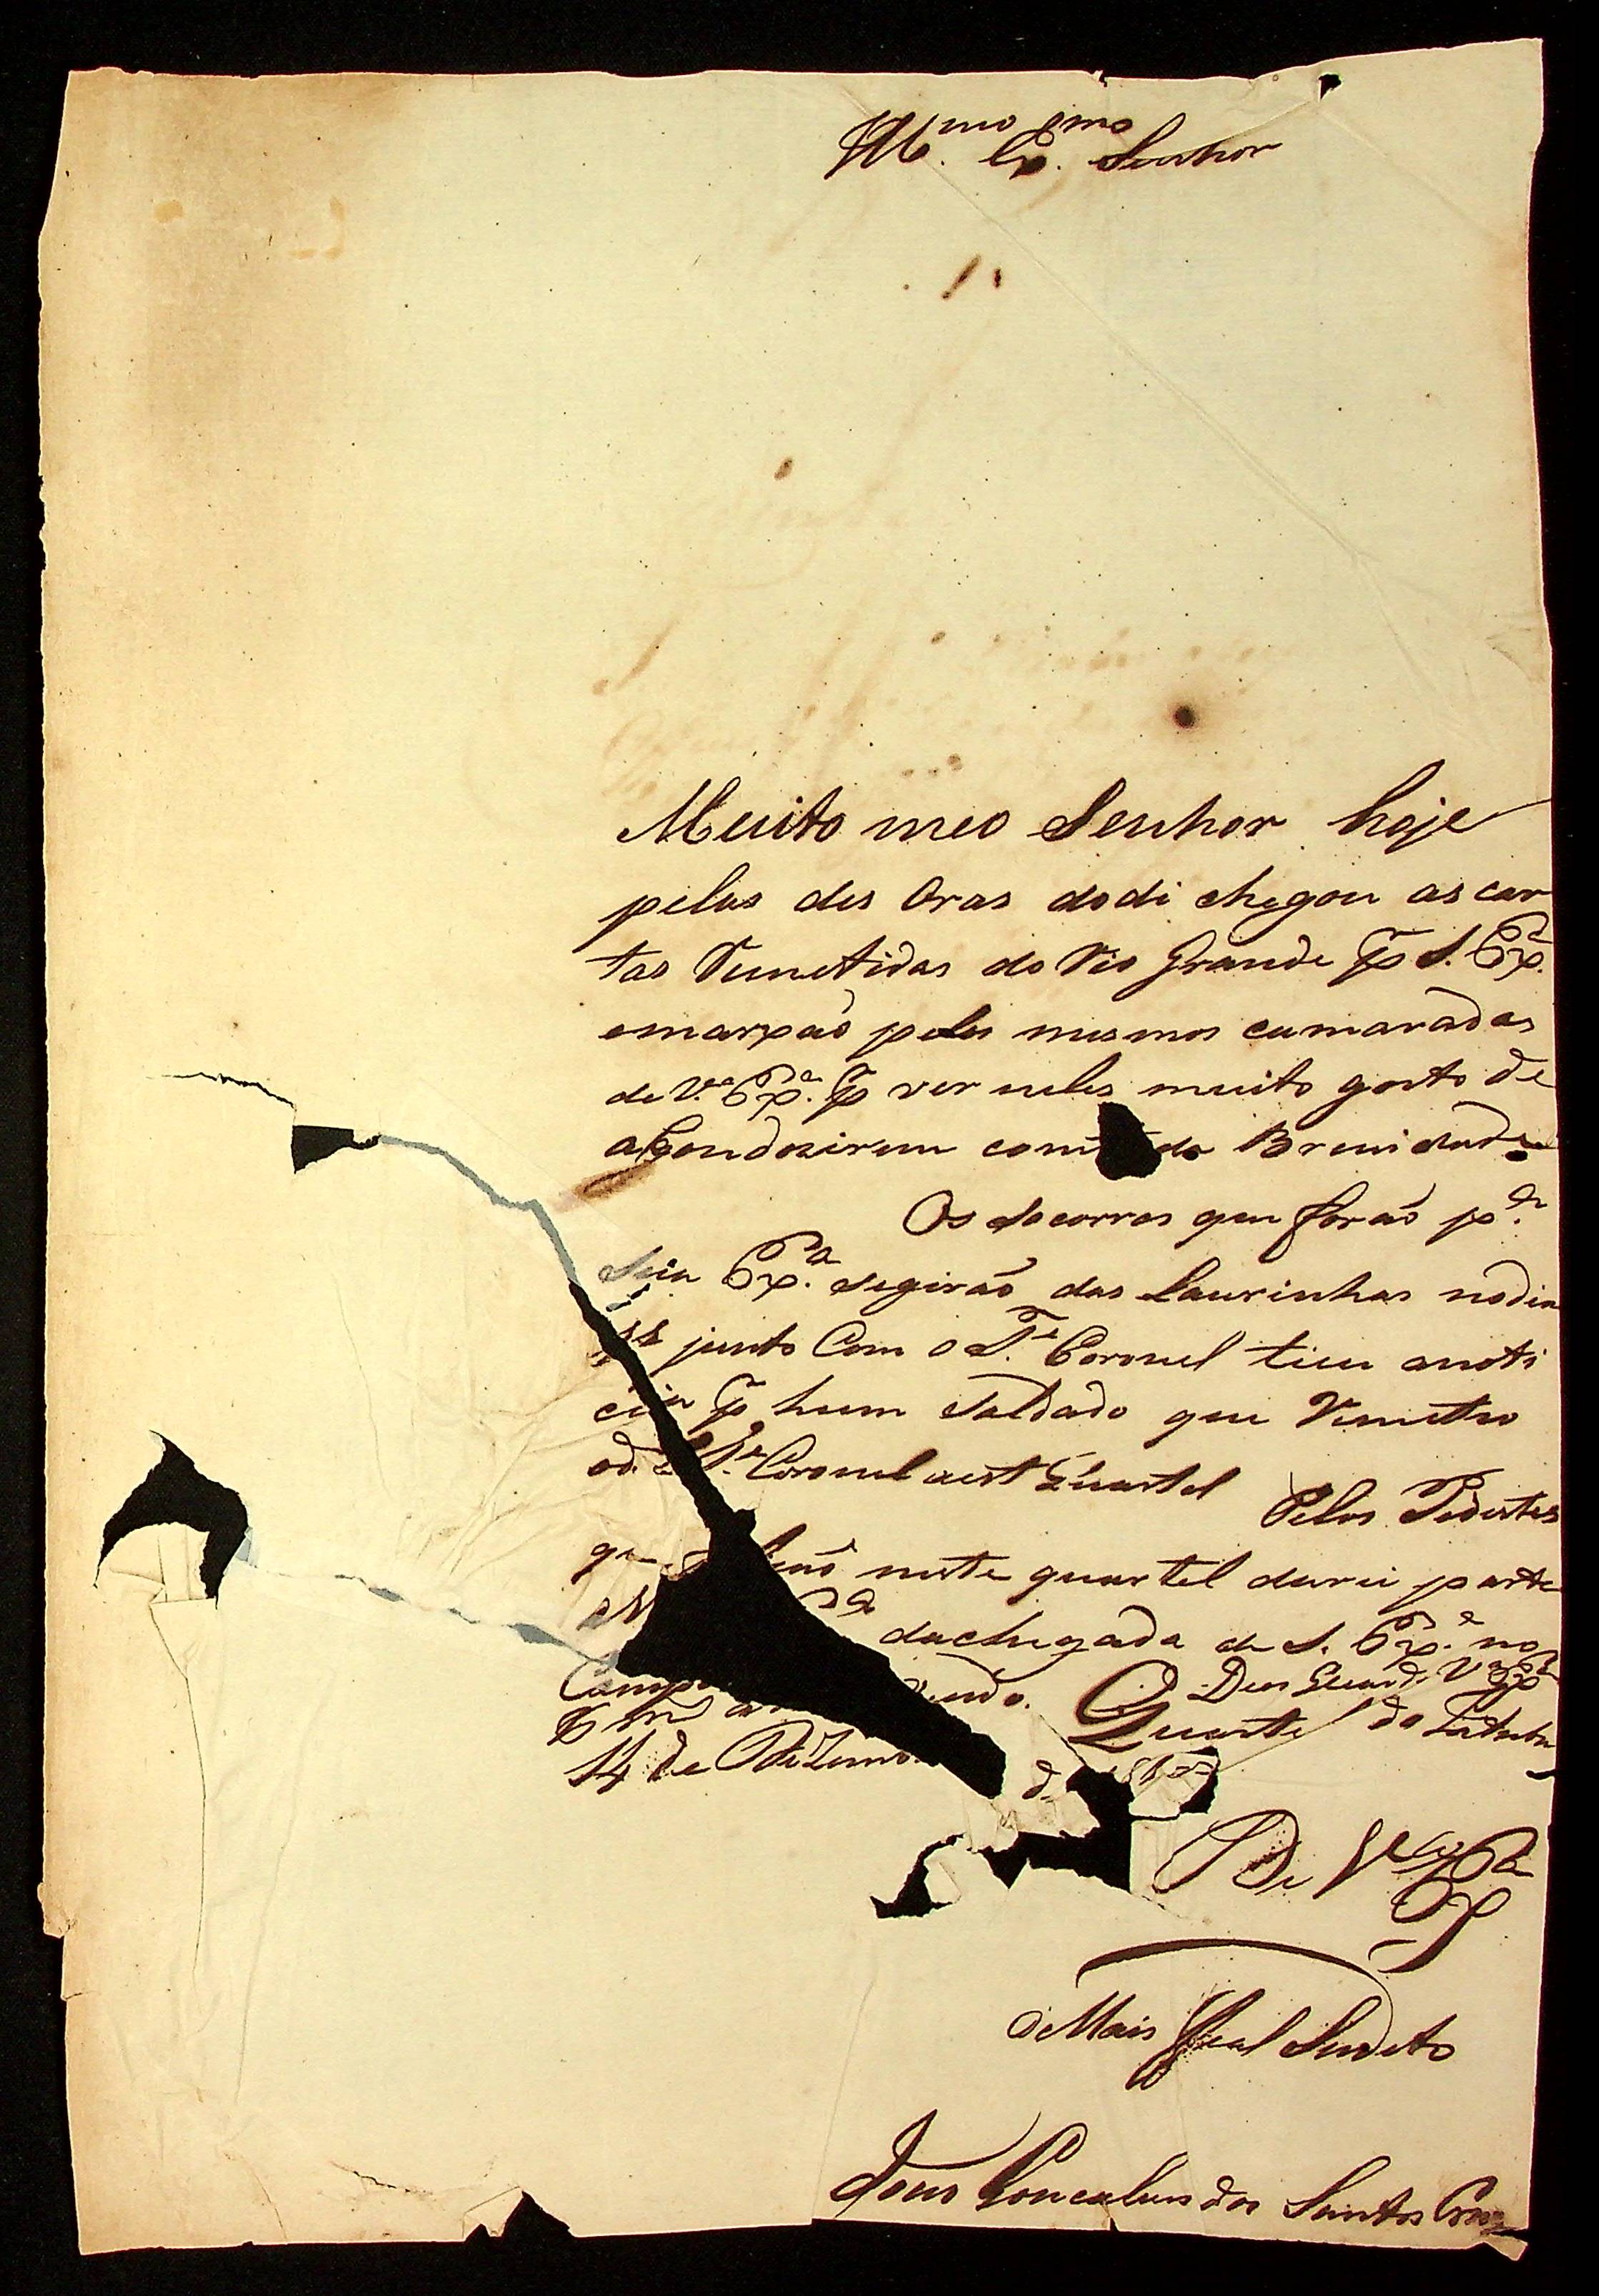 Ill.mo Ex.mo Senhor
Muito meo Senhor hoje
pelas des Oras do di chegou as car
tas Remetidas do Rio Grande p S. Ex.a
emarxaõ pelos mesmos camaradas
de V.a Ex.a p ver neles muito gosto de
aCondozirem com da Brevidade
Os Socorros que foraõ p.a
Sua Ex.a segiraõ das Laurinhas nodia
junto Com o T.e Coronel tive anoti
cia p hum Saldado que Remeteo
od. T.e Coronel aest Quartel Pelos Pedestes
neste quartel darei parte
dachegada de S. Ex.a no
Deos Guarde V.a Ex.a
Quartel do
14 de Dezem
de
De V.a Ex.a
o Mais Leal Sudeto
Gonculves dos Santos Cruz